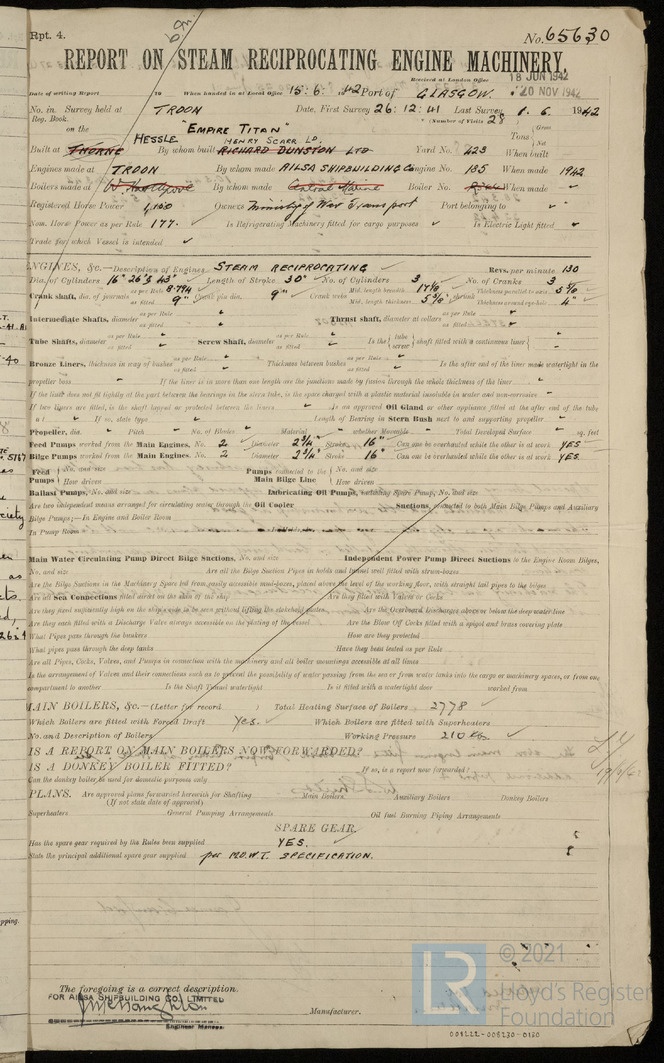 Rpt. 4.
No. 65630
REPORT ON STEAM RECIPROCATING ENGINE MACHINERY.
Received at London Office 18 JUN 1942
20 NOV 1942
Date of writing Report 19 When handed in at Local Office 15.6.1942 Port of GLASGOW.
No. in Reg. Book. Survey held at TROON Date, First Survey 26:12:41 Last Survey 1.6.1942
(Number of Visits 28
on the "EMPIRE TITAN" Tons Gross Net
HESSLE HENRY SCARR LD.
Built at THORNE By whom built RICHARD DUNSTON LTD Yard No. 423 When built
Engines made at TROON By whom made AILSA SHIPBUILDING Co Engine No. 135 When made 1942
Boilers made at By whom made Central Marine Boiler No. When made
Registered Horse Power Owners Ministry of War Transport Port belonging to
Nom. Horse Power as per Rule 177. Is Refrigerating Machinery fitted for cargo purposes Is Electric Light fitted
Trade for which Vessel is intended
ENGINES, &c.—Description of Engines STEAM RECIPROCATING Revs. per minute 130
Dia. of Cylinders 16" 26" & 43" Length of Stroke 30" No. of Cylinders 3 No. of Cranks 3
Crank shaft, dia. of journals as per Rule 8.794 as fitted 9" Crank pin dia. 9" Crank webs Mid. length breadth Mid. length thickness 5 5/8" shrunk Thickness parallel to axis 5 5/8 Thickness around eye-hole 4"
Intermediate Shafts, diameter as per Rule as fitted Thrust shaft, diameter at collars as per Rule as fitted
Tube Shafts, diameter as per Rule as fitted Screw Shaft, diameter as per Rule as fitted Is the { tube screw } shaft fitted with a continuous liner {
Bronze Liners, thickness in way of bushes as per Rule as fitted Thickness between bushes as per Rule as fitted Is the after end of the liner made watertight in the
propeller boss If the liner is in more than one length are the junctions made by fusion through the whole thickness of the liner
If the liner does not fit tightly at the part between the bearings in the stern tube, is the space charged with a plastic material insoluble in water and non-corrosive
If two liners are fitted, is the shaft lapped or protected between the liners Is an approved Oil Gland or other appliance fitted at the after end of the tube
If so, state type Length of Bearing in Stern Bush next to and supporting propeller
Propeller, dia. Pitch No. of Blades Material whether Moveable Total Developed Surface sq. feet
Feed Pumps worked from the Main Engines, No. 2 Diameter 2 3/4" Stroke 16" Can one be overhauled while the other is at work YES
Bilge Pumps worked from the Main Engines, No. 2 Diameter 2 3/4" Stroke 16" Can one be overhauled while the other is at work YES.
Feed Pumps { No. and size How driven Pumps connected to the Main Bilge Line { No. and size How driven
Ballast Pumps, No. and size Lubricating Oil Pumps, including Spare Pump, No. and size
Are two independent means arranged for circulating water through the Oil Cooler Suctions, connected to both Main Bilge Pumps and Auxiliary
Bilge Pumps;—In Engine and Boiler Room
In Pump Room
Main Water Circulating Pump Direct Bilge Suctions, No. and size Independent Power Pump Direct Suctions to the Engine Room Bilges,
No. and size Are all the Bilge Suction Pipes in holds and tunnel well fitted with strum-boxes
Are the Bilge Suctions in the Machinery Space led from easily accessible mud-boxes, placed above the level of the working floor, with straight tail pipes to the bilges
Are all Sea Connections fitted direct on the skin of the ship Are they fitted with Valves or Cocks
Are they fixed sufficiently high on the ship's side to be seen without lifting the stokehold plates Are the Overboard Discharges above or below the deep water line
Are they each fitted with a Discharge Valve always accessible on the plating of the vessel Are the Blow Off Cocks fitted with a spigot and brass covering plate
What Pipes pass through the bunkers How are they protected
What pipes pass through the deep tanks Have they been tested as per Rule
Are all Pipes, Cocks, Valves, and Pumps in connection with the machinery and all boiler mountings accessible at all times
Is the arrangement of Valves and their connections such as to prevent the possibility of water passing from the sea or from water tanks into the cargo or machinery spaces, or from one
compartment to another Is the Shaft Tunnel watertight Is it fitted with a watertight door worked from
MAIN BOILERS, &c.—(Letter for record ) Total Heating Surface of Boilers 2778
Which Boilers are fitted with Forced Draft Yes. Which Boilers are fitted with Superheaters
No. and Description of Boilers Working Pressure 210 lbs.
IS A REPORT ON MAIN BOILERS NOW FORWARDED?
IS A DONKEY BOILER FITTED? If so, is a report now forwarded?
Can the donkey boiler be used for domestic purposes only
PLANS. Are approved plans forwarded herewith for Shafting Main Boilers Auxiliary Boilers Donkey Boilers
(If not state date of approval)
Superheaters General Pumping Arrangements Oil fuel Burning Piping Arrangements
SPARE GEAR.
Has the spare gear required by the Rules been supplied YES.
State the principal additional spare gear supplied per M.O.W.T. SPECIFICATION.
The foregoing is a correct description.
FOR AILSA SHIPBUILDING CO. LIMITED
Manufacturer.
Engineer Manager
LR
© 2021
Lloyd's Register
Foundation